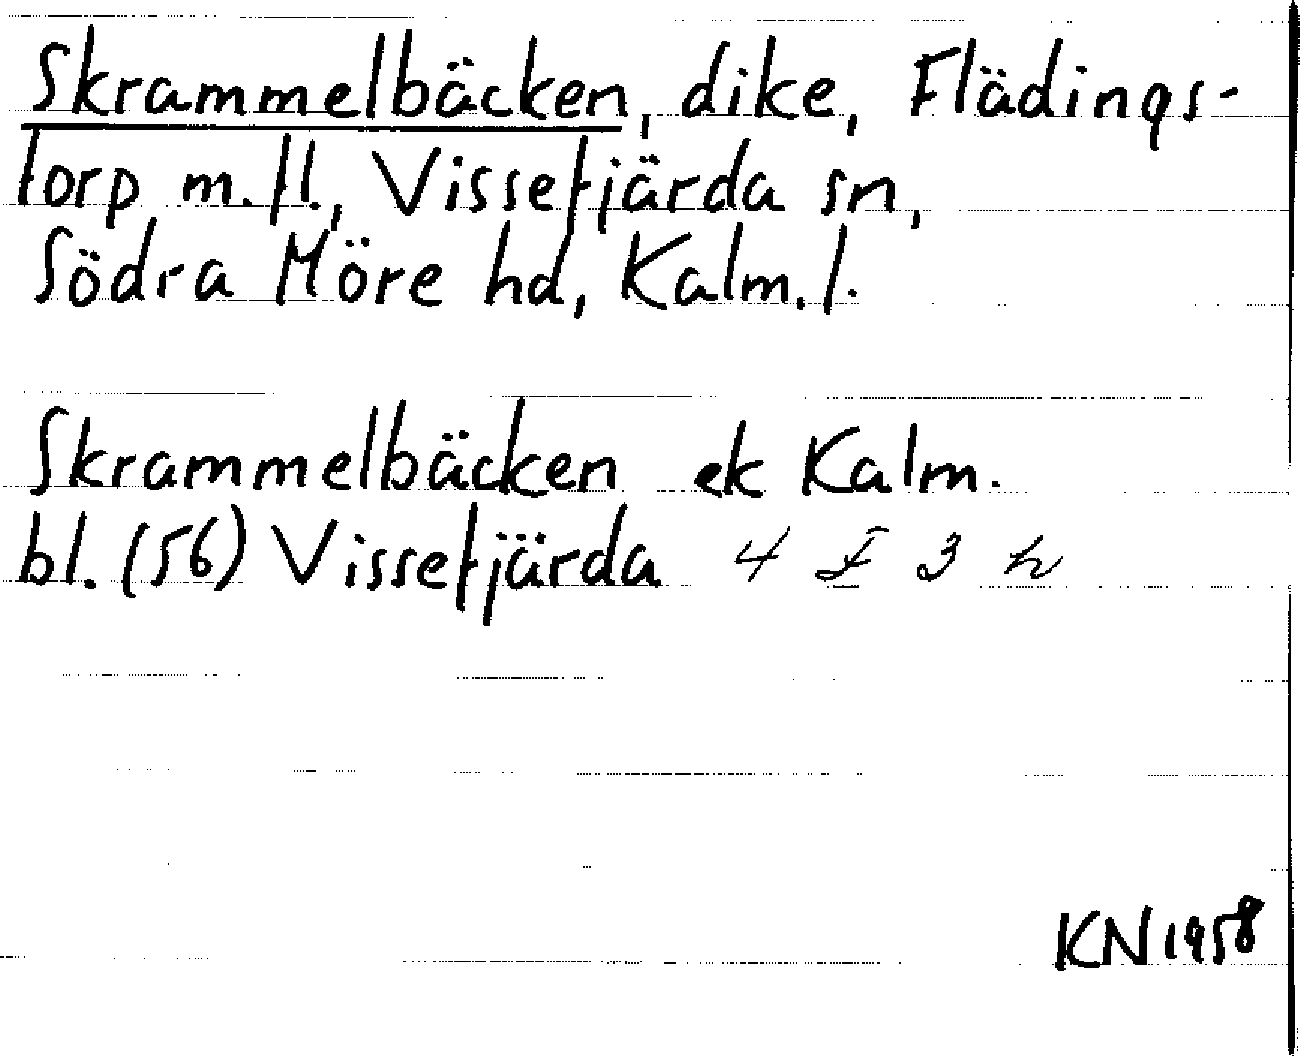 Skrammelbäcken, dike, Flädings-
torp m.fl., Vissefjärda sn,
Södra Möre hd, Kalm. l.
Skrammelbäcken ek Kalm.
bl. (56) Vissefjärda 4 I 3 h
KN 1958